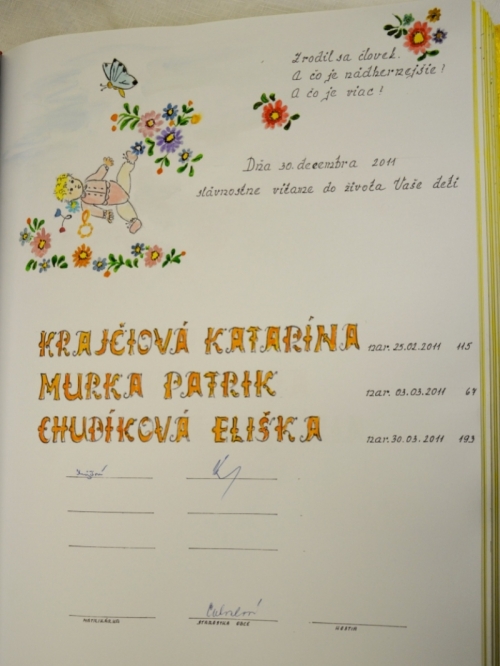 Zrodil sa človek.
A čo je nádhernejšie!
A čo je viac!
Dňa 30. decembra 2011
slávnostne vítame do života Vaše deti
KRAJČIOVÁ KATARÍNA nar. 25.02.2011 115
MURKA PATRIK nar. 03.03.2011 64
CHUDÍKOVÁ ELIŠKA nar. 30.03.2011 193
MATRIKÁRKA STAROSTKA OBCE HOSTIA